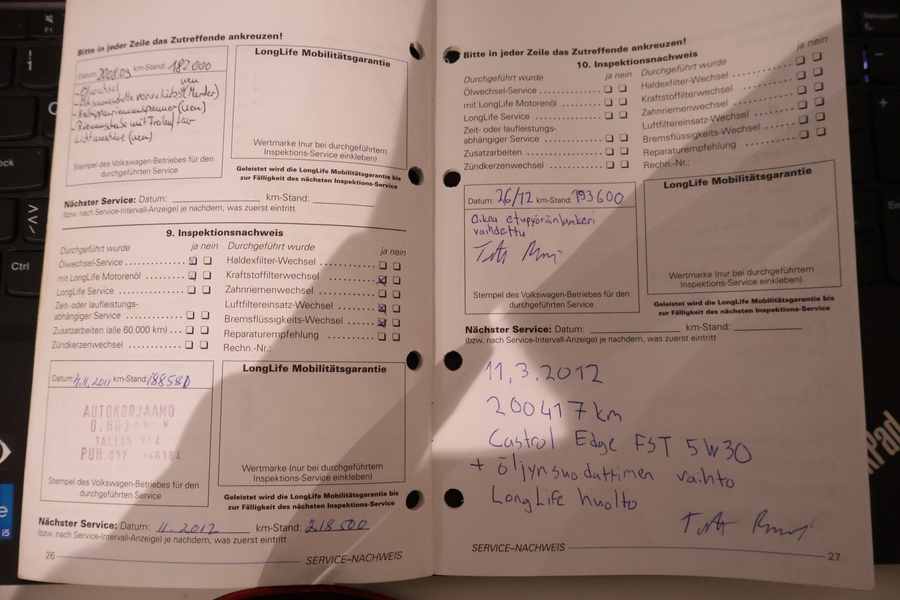 Bitte in jeder Zeile das Zutreffende ankreuzen!
Datum: km-Stand: 182.000
neu
(Marder)
(neu)
(neu)
Stempel des Volkswagen-Betriebes für den
durchgeführten Service
LongLife Mobilitätsgarantie
Wertmarke (nur bei durchgeführtem
Inspektions-Service einkleben)
Geleistet wird die LongLife Mobilitätsgarantie bis
zur Fälligkeit des nächsten Inspektions-Service
Nächster Service: Datum: km-Stand:
(bzw. nach Service-Intervall-Anzeige) je nachdem, was zuerst eintritt
9. Inspektionsnachweis
Durchgeführt wurde ja nein
Ölwechsel-Service
mit LongLife Motorenöl
LongLife Service
Zeit- oder laufleistungs-
abhängiger Service
Zusatzarbeiten (alle 60.000 km)
Zündkerzenwechsel
Durchgeführt wurde ja nein
Haldexfilter-Wechsel
Kraftstoffilterwechsel
Zahnriemenwechsel
Luftfiltereinsatz-Wechsel
Bremsflüssigkeits-Wechsel
Reparaturempfehlung
Rechn.-Nr.:
Datum: 11.2011 km-Stand: 188580
AUTOKORJAAMO
PUH.017
Stempel des Volkswagen-Betriebes für den
durchgeführten Service
LongLife Mobilitätsgarantie
Wertmarke (nur bei durchgeführtem
Inspektions-Service einkleben)
Geleistet wird die LongLife Mobilitätsgarantie bis
zur Fälligkeit des nächsten Inspektions-Service
Nächster Service: Datum: 11.2012 km-Stand: 218500
(bzw. nach Service-Intervall-Anzeige) je nachdem, was zuerst eintritt
26 SERVICE–NACHWEIS
Bitte in jeder Zeile das Zutreffende ankreuzen!
10. Inspektionsnachweis
Durchgeführt wurde ja nein
Ölwechsel-Service
mit LongLife Motorenöl
LongLife Service
Zeit- oder laufleistungs-
abhängiger Service
Zusatzarbeiten
Zündkerzenwechsel
Durchgeführt wurde ja nein
Haldexfilter-Wechsel
Kraftstoffilterwechsel
Zahnriemenwechsel
Luftfiltereinsatz-Wechsel
Bremsflüssigkeits-Wechsel
Reparaturempfehlung
Rechn.-Nr.:
Datum: 26/12 km-Stand: 193600
Oikea etupyöränlaakeri
vaihdettu
Stempel des Volkswagen-Betriebes für den
durchgeführten Service
LongLife Mobilitätsgarantie
Wertmarke (nur bei durchgeführtem
Inspektions-Service einkleben)
Geleistet wird die LongLife Mobilitätsgarantie bis
zur Fälligkeit des nächsten Inspektions-Service
Nächster Service: Datum: km-Stand:
(bzw. nach Service-Intervall-Anzeige) je nachdem, was zuerst eintritt
11.3.2012
200417 km
Castrol Edge FST 5W30
+ öljynsuodattimen vaihto
LongLife huolto
SERVICE–NACHWEIS 27
Ctrl
i5
Pad